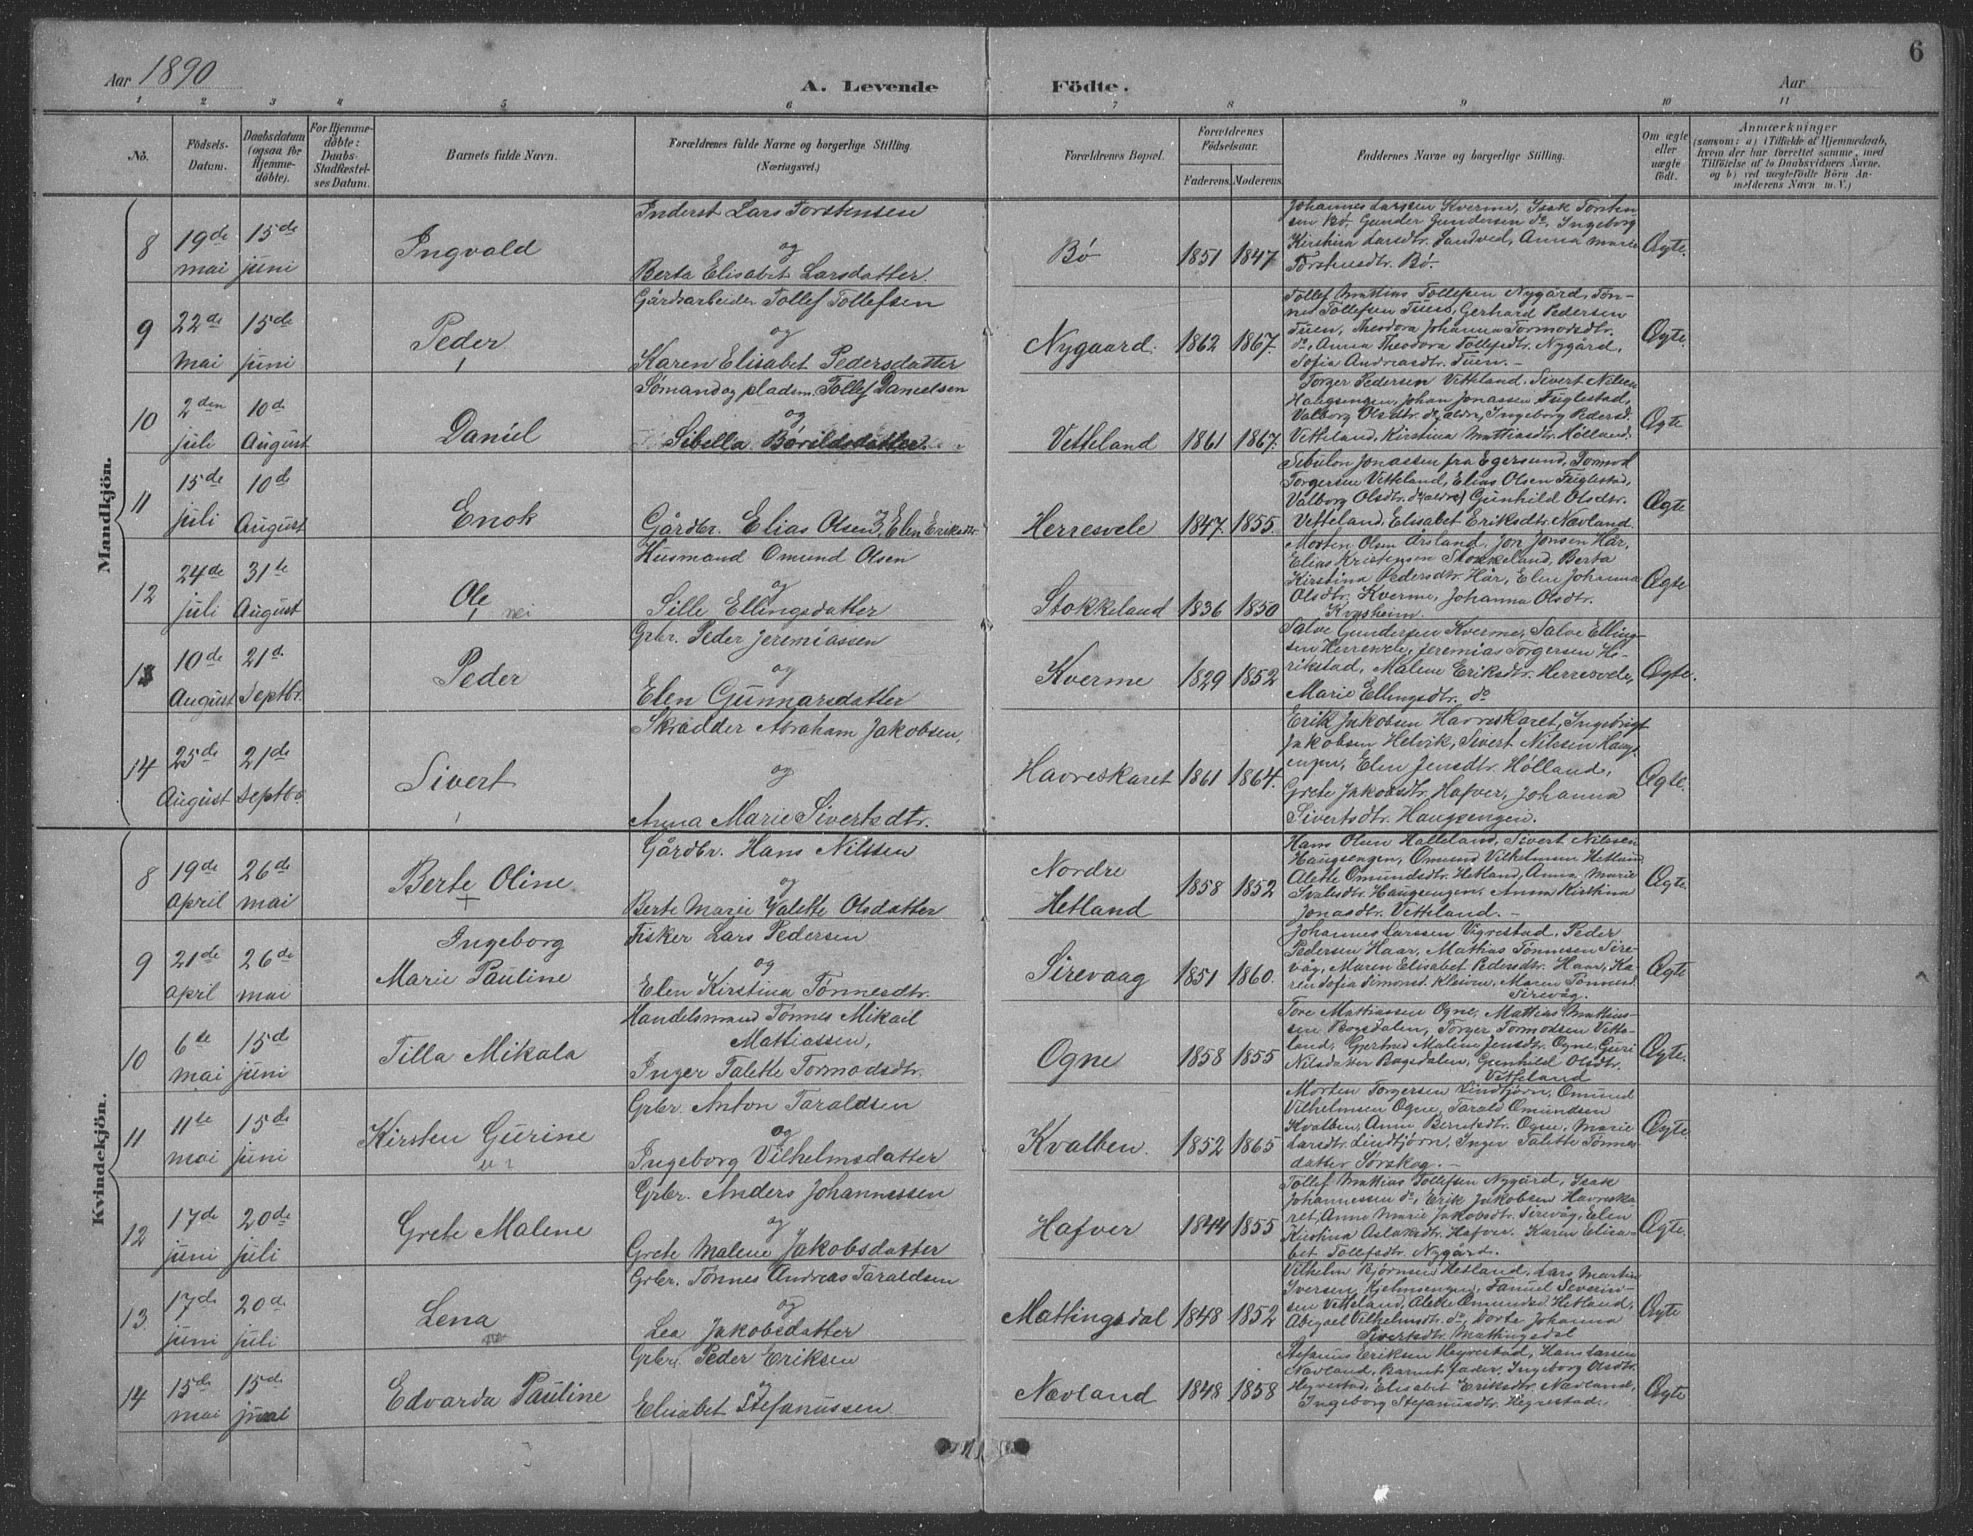 6
Aar 1890
A. Levende Födte.
Aar
1 2 3 4 5 6 7 8 9 10 11
No.
Födsels-Datum.
Daabsdatum (ogsaa for Hjemme-döbte).
For Hjemme-döbte: Daabs-Stadfæstel-ses Datum.
Barnets fulde Navn.
Forældrenes fulde Navne og borgerlige Stilling. (Næringsvei.)
Forældrenes Bopæl.
Forældrenes Födselsaar.
Faderens. Moderens.
Faddernes Navne og borgerlige Stilling.
Om ægte eller uægte födt.
Anmærkninger
(saasom: a) i Tilfælde af Hjemmedaab,
hvem der har forrettet samme, med
Tilföielse af to Daabsvidners Navne,
og b) ved uægtefödte Börn An-
melderens Navn m. V.)
Mandkjön.
8 19de mai 15de juni Ingvald
Inderst Lars Torstensen
og
Berta Elisabet Larsdatter.
Bö 1851 1847
Johannes Larssen Kverme, Isak Torsten
sen Bö, Gunder Gundersen do, Ingeborg
Kirstina Larsdtr. Sandved, Anna Marie
Torstensdtr. Bö.
Ægte.
9 22de mai 15de juni Peder
Gårdsarbeider Tollef Tollefsen
og
Karen Elisabet Pedersdatter
Nygaard. 1862 1867.
Tollef Mattias Tollefsen Nygård, Tön-
nes Tollefsen Tuen, Gerhard Pedersen
Tuen, Theodora Johanna Tormodsdtr.
do, Anna Theodora Tollefsdtr. Nygård,
Sofia Andreasdtr. Tuen. -
Ægte.
10 2den juli 10de August Daniel
Sömand og pladsm. Tollef Danielsen
og
Sibella Börildsdatter
Vetteland 1861 1867.
Torger Pedersen Vetteland, Sivert Nilsen
Haugsengen, Johan Jonassen Fuglestad,
Valborg Olsdtr. do, ældre, Ingeborg Pedersd.
Vetteland, Kirstina Mattiasdtr. Hölland.
Ægte
11 15de juli 10de August Enok
Gårdbr. Elias Olsen, Elen Eriksdtr.
Herresvele 1847. 1855.
Sebulon Jonassen fra Egersund, Tormod
Torgersen Vetteland, Elias Olsen Fuglestad,
Valborg Olsdtr. do (ældre) Gunhild Olsdtr.
Vetteland, Elisabet Eriksdtr. Nævland.
Ægte
12 24de juli 31te August Ole
nei
Husmand Omund Olsen
og
Sille Ellingsdatter
Stokkeland 1836 1850
Morten Olsen Årsland, Jon Jonsen Hår,
Elias Kristensen Stokkeland, Berta
Kirstina Pedersdtr. Hår, Elen Johanna
Olsdtr. Kverme, Johanna Olsdtr.
Kvasheim.
Ægte
13 10de August 21d. Septbr. Peder
Grbr. Peder Jeremiassen
og
Elen Gunnarsdatter
Kverme 1829 1852
Salve Gundersen Kverme, Salve Elling-
sen Herresvele, Jeremias Torgersen He-
rikstad, Malene Eriksdtr. Herresvele,
Marie Ellingsdtr. do
Ægte.
14 25de August 21de Septbr Sivert
Skrædder Abraham Jakobsen,
og
Anna Marie Sivertsdtr.
Havreskaret 1861 1864.
Erik Jakobsen Havreskaret, Ingebrigt
Jakobsen Helvik, Sivert Nilsen Haugs-
engen, Elen Jensdtr. Hölland,
Grete Jakobsdtr. Hafver, Johanna
Sivertsdtr. Haugsengen.
Ægte.
Kvindekjön.
8 19de april 26de mai Berte Oline
Gårdbr. Hans Nilssen
og
Berte Marie Valette Olsdatter
Nordre Hetland 1858 1852
Hans Olsen Halleland, Sivert Nilssen
Haugsengen, Omund Vilhelmsen Hetland
Alette Omundsdtr. Hetland, Anna Marie
Svalesdtr. Haugsengen, Anna Kirstina
Jonasdtr. Vetteland. -
Ægte.
9 21de april 26de mai Ingeborg Marie Pauline
Fisker Lars Pedersen
og
Elen Kirstina Tönnesdtr.
Sirevaag 1851 1860.
Johannes Larssen Vigrestad, Peder
Pedersen Haar, Mathias Tönnesen Sire-
våg, Maren Elisabet Pedersdtr. Haar, Ka-
ren Sofia Simonsd. Kleiven, Maren Tönnesd.
Sirevåg.
Ægte
10 6te mai 15de juni Tilla Mikala
Handelsmand Tönnes Mikail
Mattiassen,
Inger Talette Tormodsdtr.
Ogne 1858 1855
Tore Mattiassen Ogne, Mattias Mattias-
sen Bogsdalen, Torger Tormodsen Vette-
land, Gertrud Malene Jensdtr. Ogne, Guri
Nilsdatter Bagsdalen, Gunhild Olsdtr.
Vetteland
Ægte.
11 11te mai 15de juni Kirsten Gurine
Grbr. Anton Taraldsen
og
Ingeborg Vilhelmsdatter
Kvalben. 1852 1865
Morten Torgersen Lindtjörn, Omund
Vilhelmsen Ogne, Tarald Omundsen
Kvalben, Anne Berntsdtr. Ogne, Marie
Larsdtr. Lindtjörn, Inger Talette Tönnes-
datter Sörskog. -
Ægte
12 17de juni 20de juli Grete Malene
Grbr. Anders Johannessen
og
Grete Malene Jakobsdatter
Hafver 1844 1855
Tollef Mattias Tollefsen Nygård, Isak
Johannessen do, Erik Jakobsen Havreska-
ret, Anna Marie Jakobsdtr. Sirevåg, Elen
Kirstina Aslaksdtr. Hafver, Karen Elisa-
bet Tollefsdtr. Nygård.
Ægte.
13. 17de juni 20de juli Lena
Grbr. Tönnes Andreas Taraldsen
og
Lea Jakobsdatter
Mattingsdal 1848 1852
Vilhelm Björnsen Hetland, Lars Martin
Iversen Hjelmsengen, Samuel Severin-
sen Vetteland, Alette Omundsd. Hetland,
Abigael Vilhelmsdtr. do, Dorte Johanna
Sivertsdtr. Mattingsdal
Ægte
14 15de mai 15de juni Edvarda Pauline
Grbr. Peder Eriksen
og
Elisabet Stefanussen
Nævland 1848 1858
Stefanus Eriksen Hegrestad, Hans Larsen
Nævland, Berent Jader, Ingeborg Olsdtr.
Hegrestad, Elisabet Eriksdtr. Nævland,
Ingeborg Stefanusdtr. Hegrestad.
Ægte